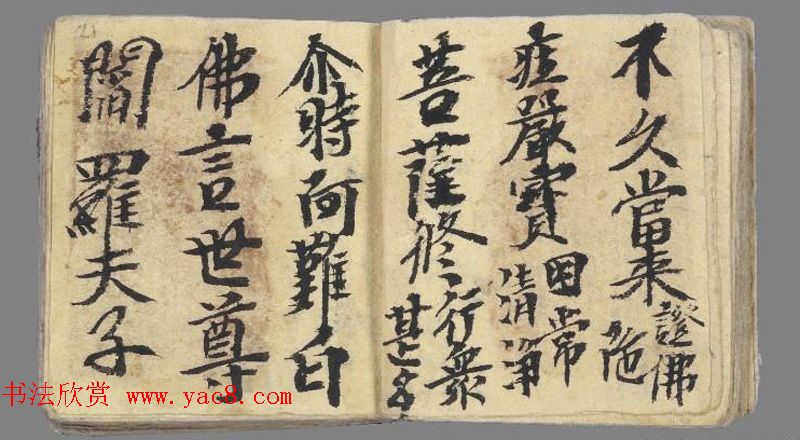 不久當来證佛陁
庄嚴寶囯常清淨
菩薩修行衆甚多
尒時阿難白
佛言世尊
閻羅天子
21
书法欣赏 www.yac8.com